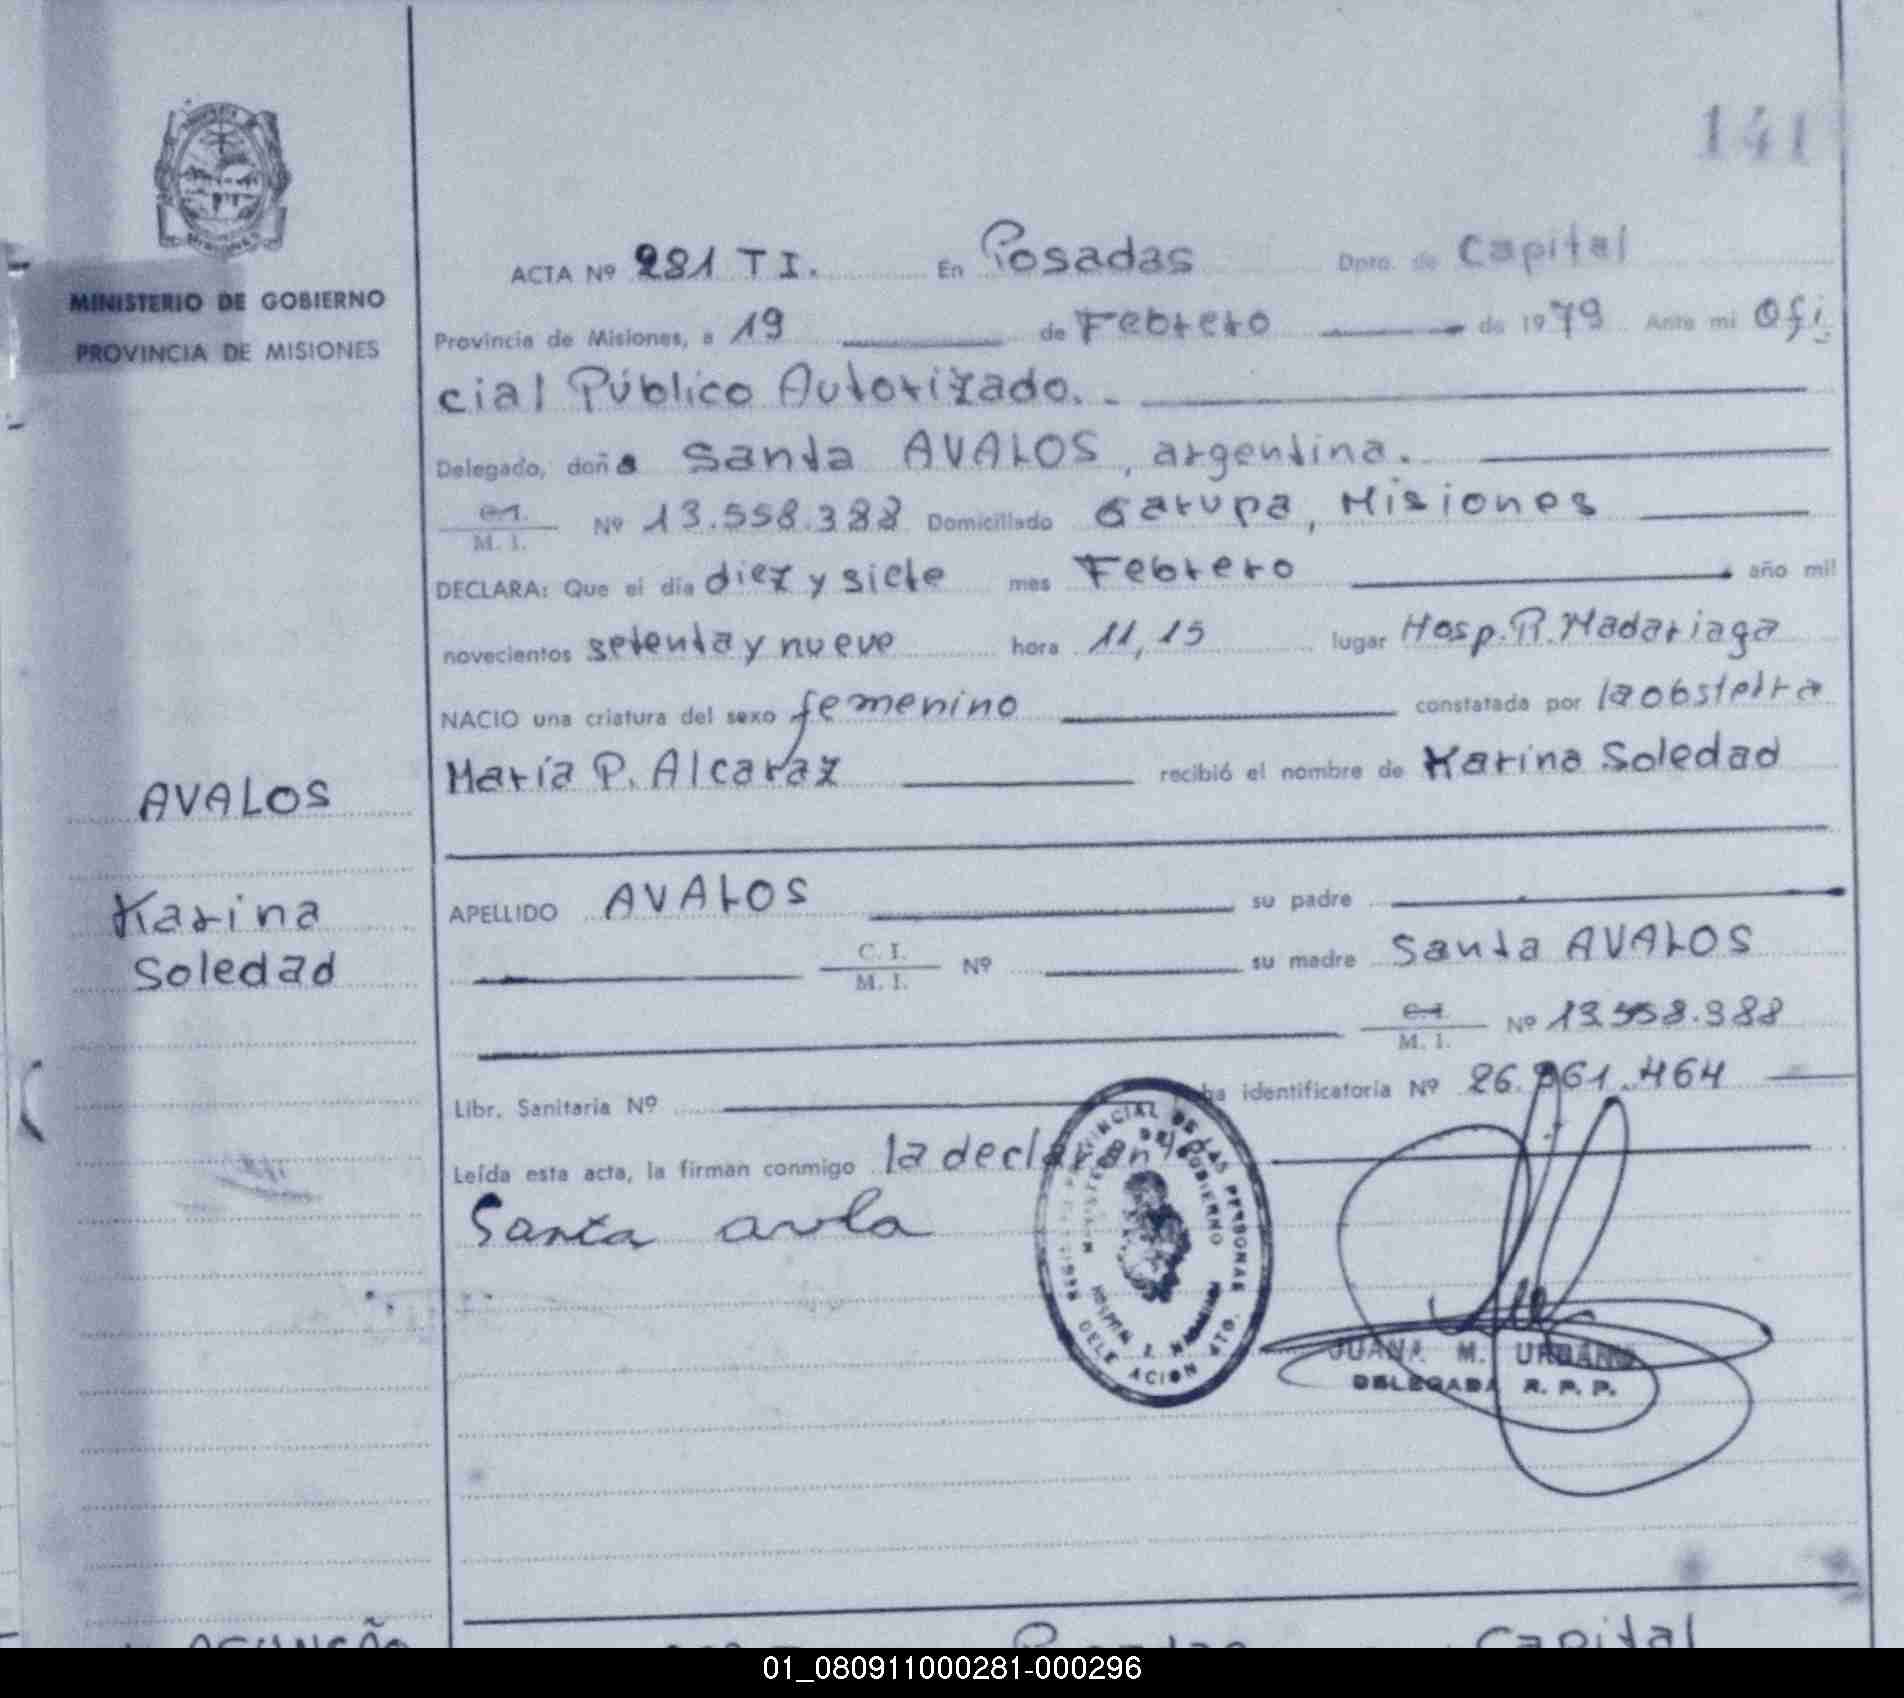 141
ACTA Nº 281 T I. En Posadas Dpto. de Capital
MINISTERIO DE GOBIERNO
PROVINCIA DE MISIONES
Provincia de Misiones, a 19 de Febrero de 1979 Ante mi Ofi
cial Público Autorizado. -
Delegado, doña Santa AVALOS, argentina.
C.I. M. I. Nº 13.558.388 Domiciliado Garupa, Misiones
DECLARA: Que el día diez y siete mes Febrero año mil
novecientos setenta y nueve hora 11,15 lugar Hosp. R. Madariaga
NACIO una criatura del sexo femenino constatada por la obstetra
María P. Alcaraz recibió el nombre de Karina Soledad
AVALOS
Karina
Soledad
APELLIDO AVALOS su padre
C. I. M. I. Nº su madre Santa AVALOS
C.I. M. I. Nº 13.558.388
Libr. Sanitaria Nº ha identificatoria Nº 26.861.464
Leída esta acta, la firman conmigo la declarante
Santa avla
PROVINCIAL DE LAS PERSONAS
MINISTERIO DE GOBIERNO
HOSPITAL
DELEGACION
JUANA M. URBANO
DELEGADA R. P. P.
Capital
01_080911000281-000296